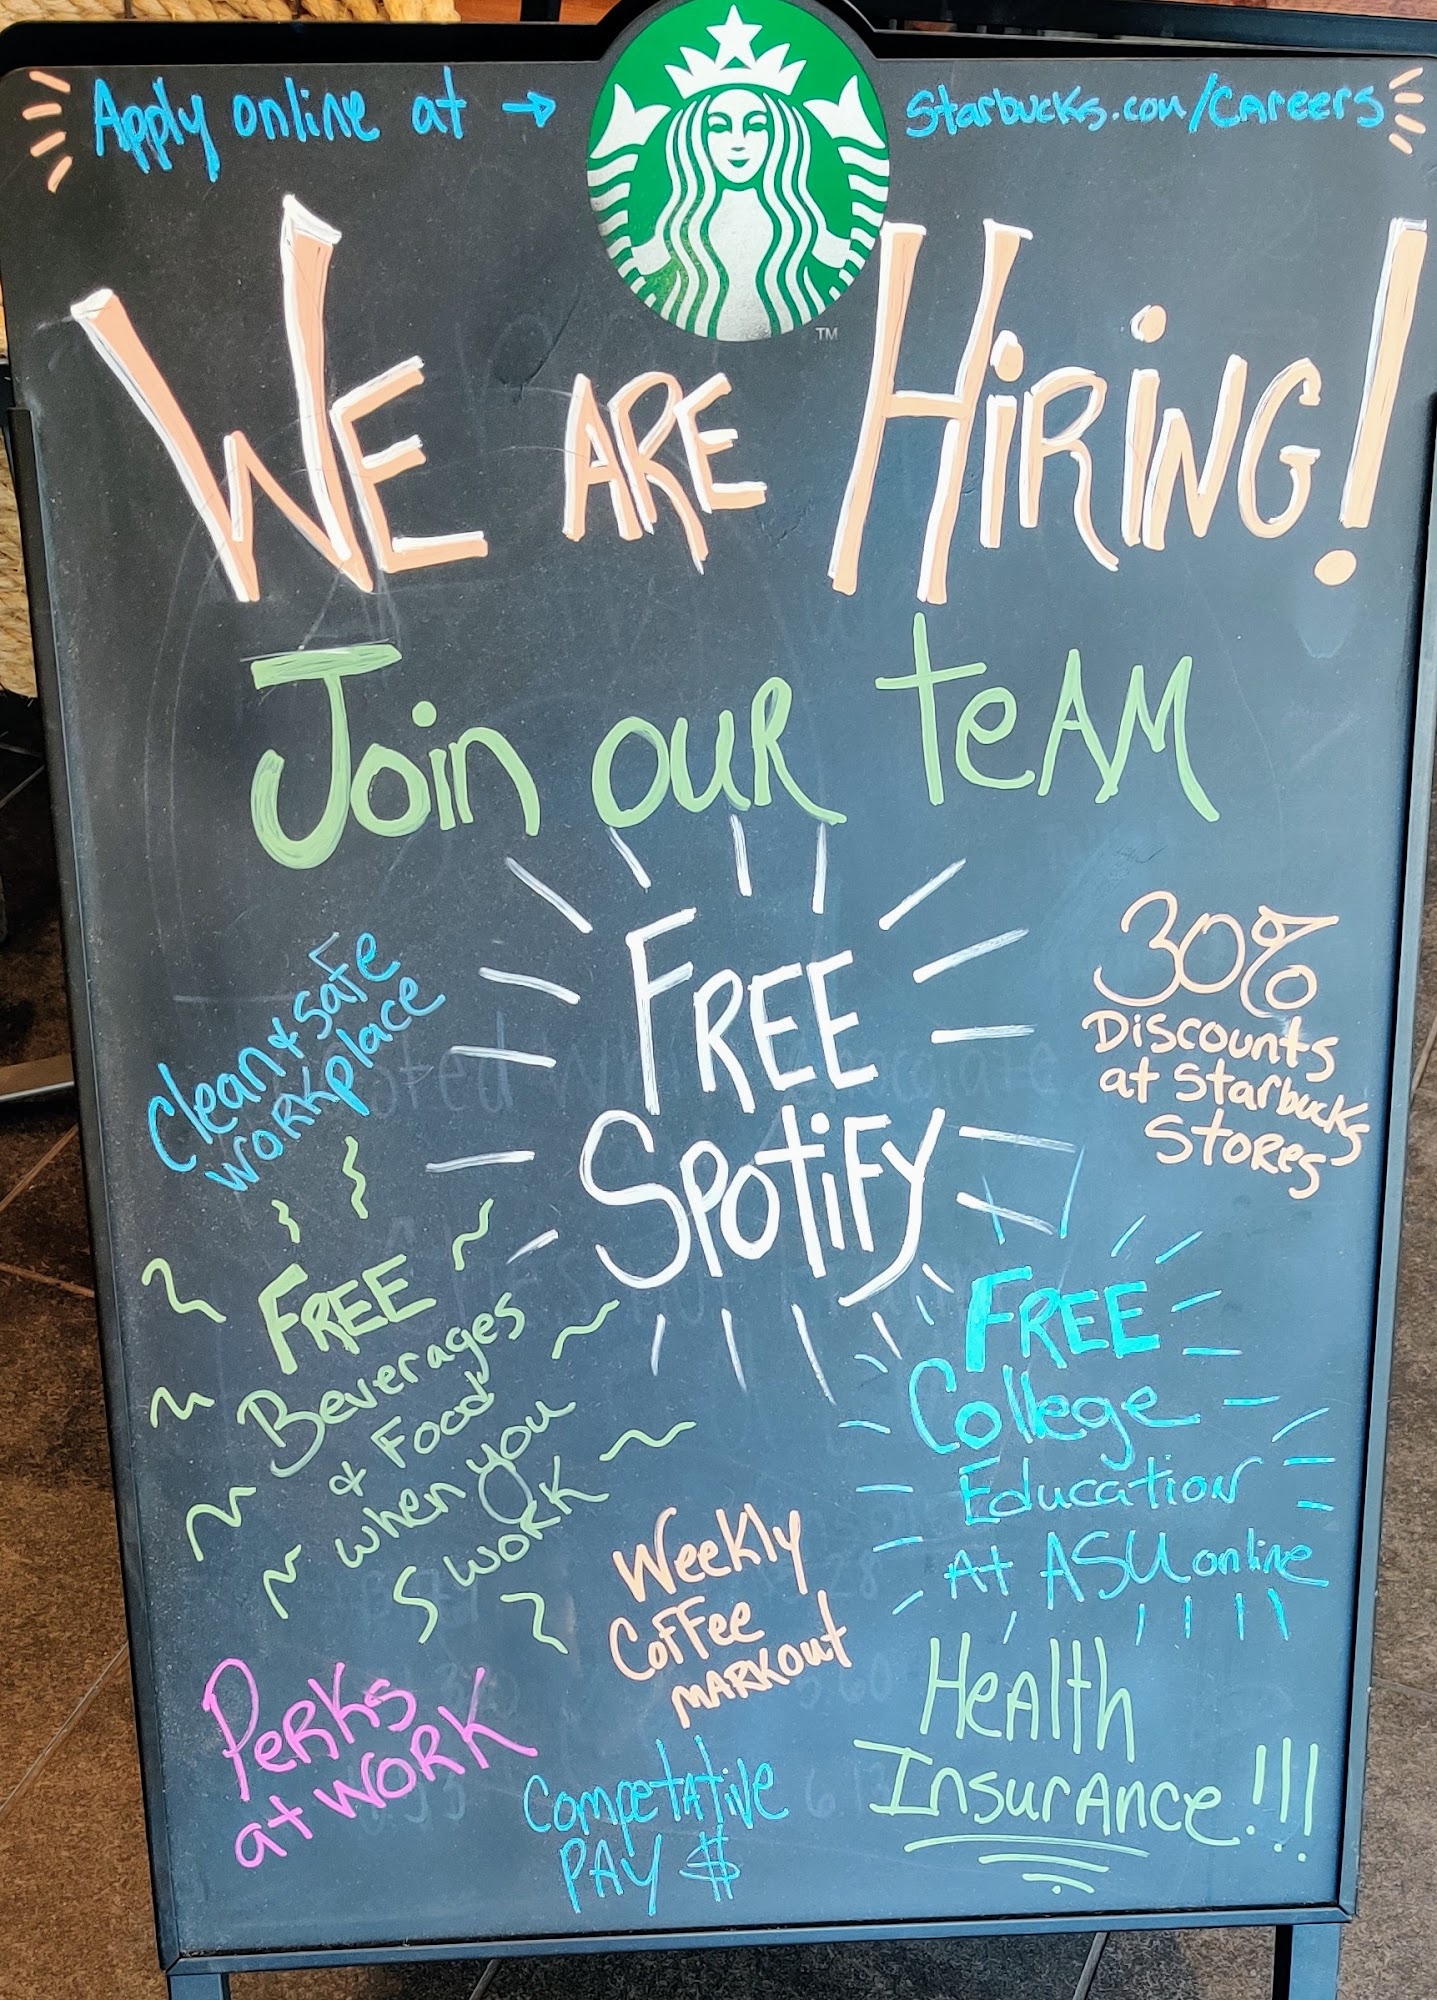 Apply online at → Starbucks.com/Careers
TM
WE ARE HIRING!
Join our team
FREE
Spotify
Clean & safe
workplace
30%
Discounts
at Starbucks
Stores
FREE
Beverages
& Food
when you
work
FREE
College
Education
At ASU online
Weekly
Coffee
markout
Perks
at work
Competative
Pay $
Health
Insurance!!!